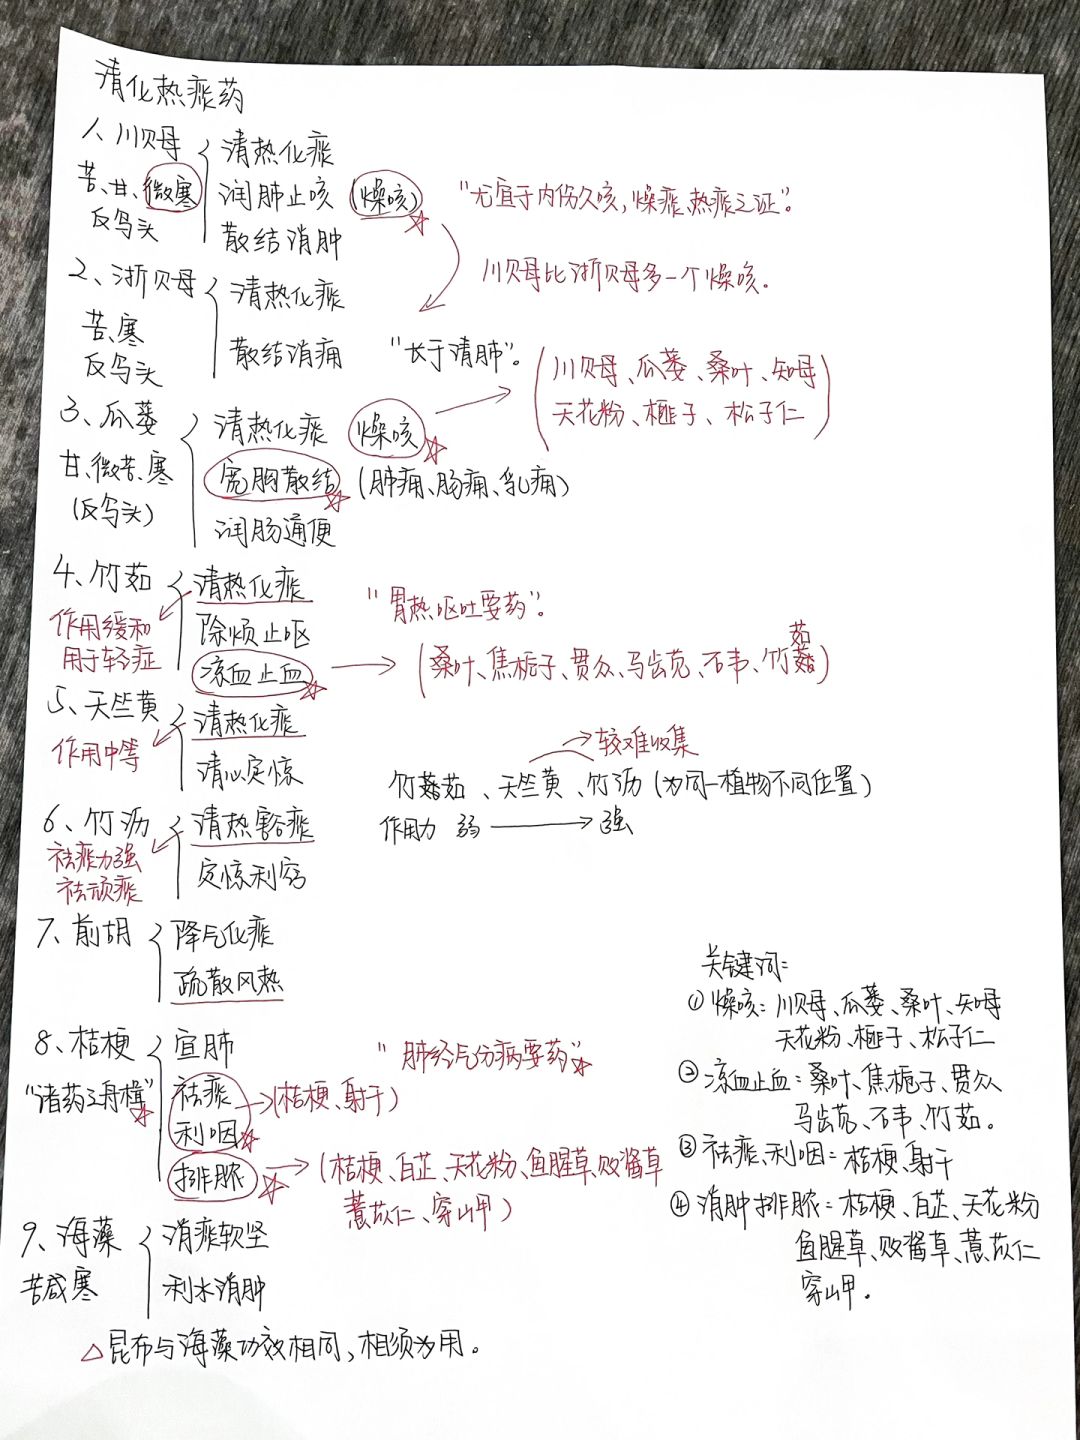 清化热痰药
1、川贝母 清热化痰
苦、甘、微寒 润肺止咳 (燥咳) "尤宜于内伤久咳,燥痰、热痰之证"。
反乌头 散结消肿
川贝母比浙贝母多一个燥咳.
2、浙贝母 清热化痰
苦、寒 散结消痈 "长于清肺"。
反乌头
(川贝母、瓜蒌、桑叶、知母
天花粉、榧子、松子仁)
3、瓜蒌 清热化痰 燥咳
甘、微苦、寒 宽胸散结 (肺痈、肠痈、乳痈)
(反乌头) 润肠通便
4、竹茹 清热化痰 "胃热呕吐要药"。
作用缓和 除烦止呕
用于轻症 凉血止血 (桑叶、焦栀子、贯众、马齿苋、石韦、竹茹)
5、天竺黄 清热化痰
作用中等 清心定惊
较难收集
竹茹、天竺黄、竹沥(为同一植物不同位置)
作用力 弱 强
6、竹沥 清热豁痰
祛痰力强 定惊利窍
祛顽痰
7、前胡 降气化痰
疏散风热
8、桔梗 宣肺 "肺经气分病要药"
"诸药之舟楫" 祛痰 (桔梗、射干)
利咽
排脓 (桔梗、白芷、天花粉、鱼腥草、败酱草
薏苡仁、穿山甲)
9、海藻 消痰软坚
苦咸寒 利水消肿
△昆布与海藻功效相同,相须为用。
关键词:
①燥咳:川贝母、瓜蒌、桑叶、知母
天花粉、榧子、松子仁
②凉血止血:桑叶、焦栀子、贯众
马齿苋、石韦、竹茹。
③祛痰、利咽:桔梗、射干
④消肿排脓:桔梗、白芷、天花粉
鱼腥草、败酱草、薏苡仁
穿山甲.